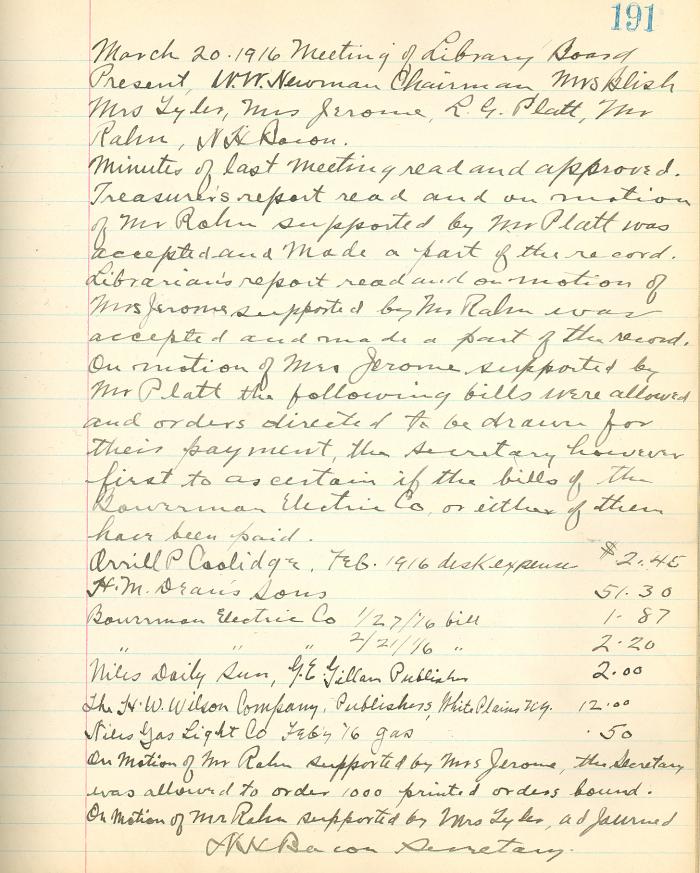 191
March 20. 1916 Meeting of Library Board
Present, W.W. Newman Chairman, Mrs Blish
Mrs Tyler, Mrs Jerome, L. G. Platt, Mr
Rahn, N H Bacon.
Minutes of last meeting read and approved.
Treasurer's report read and on motion
of Mr Rahn supported by Mr Platt was
accepted and made a part of the record.
Librarian's report read and on motion of
Mrs Jerome supported by Mr Rahn was
accepted and made a part of the record.
On motion of Mrs Jerome supported by
Mr Platt the following bills were allowed
and orders directed to be drawn for
their payment, the secretary however
first to ascertain if the bills of the
Bowerman Electric Co, or either of them
have been paid.
Orrill P Coolidge, Feb. 1916 desk expense $2.45
H. M. Dean's Sons 51.30
Bowrman Electric Co 1/27/16 bill 1.87
" " " 2/21/16 " 2.20
Niles Daily Sun, G.E. Gillam Publisher 2.00
The H. W. Wilson Company, Publishers, White Plains N.Y. 12.00
Niles Gas Light Co Feby 16 gas .50
On Motion of Mr Rahn supported by Mrs Jerome, the Secretary
was allowed to order 1000 printed orders bound.
On Motion of Mr Rahn supported by Mrs Tyler, adjourned
N H Bacon Secretary.